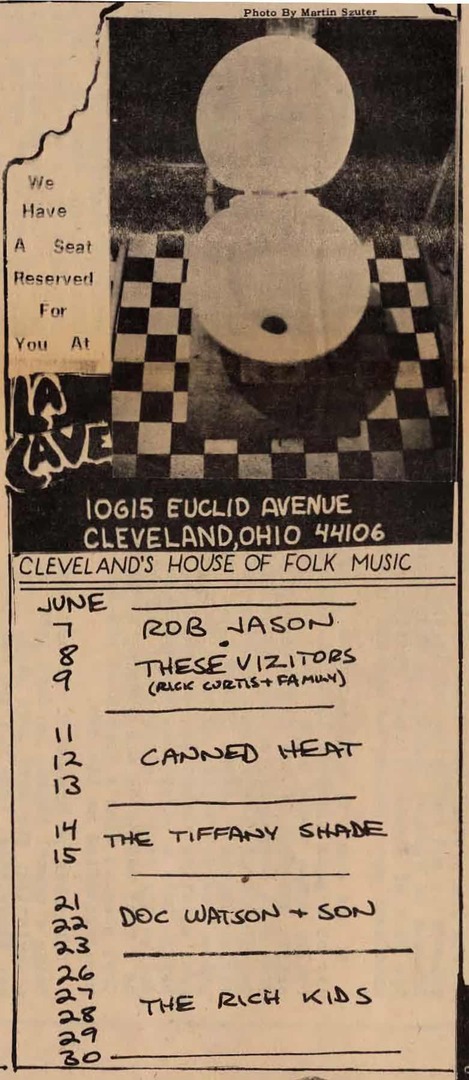 Photo By Martin Szuter
We
Have
A Seat
Reserved
For
You At
LA
CAVE
10615 EUCLID AVENUE
CLEVELAND, OHIO 44106
CLEVELAND'S HOUSE OF FOLK MUSIC
JUNE
7 ROB JASON
8 THESE VIZITORS
9 (RICK CURTIS + FAMILY)
11
12 CANNED HEAT
13
14 THE TIFFANY SHADE
15
21
22 DOC WATSON + SON
23
26
27
28 THE RICH KIDS
29
30